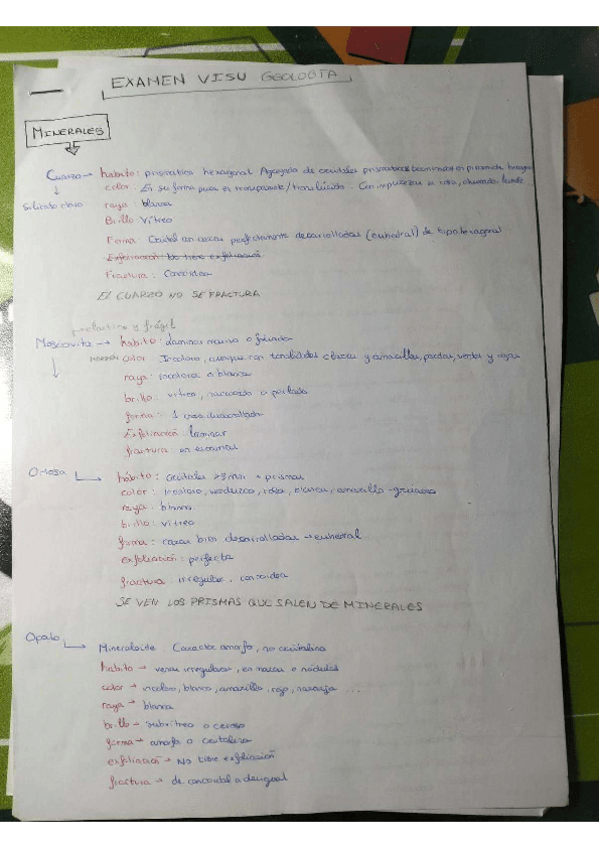 EXAMEN VISU GEOLOGÍA
MINERALES
Cuarzo → hábito: prismático hexagonal. Agregado de cristales prismáticos
color: En su forma pura es transparente/translúcido. Con impurezas
raya: blanca
Brillo: Vítreo
Forma: Cristal con caras perfectamente desarrolladas (euhedral) de tipo hexagonal
Exfoliación: No tiene exfoliación
Fractura: Concoidea
EL CUARZO NO SE FRACTURA
y frágil
Moscovita → hábito: láminas
color: Incolora, aunque con tonalidades claras y amarillas, pardas, verdes y rojas
raya: incolora o blanca
brillo: vítreo, nacarado o perlado
forma: 1 cara desarrollada
Exfoliación: laminar
fractura:
hábito: cristales prismas
color: Incoloro, verduzco, rosa, blancas, amarillo-grisáceo
raya: blanca
brillo: vítreo
forma: caras bien desarrolladas → euhedral
exfoliación: perfecta
fractura: irregular, concoidea
SE VEN LOS PRISMAS QUE SALEN DE MINERALES
Opalo
Mineraloide. Caracter amorfo, no cristalino
hábito → venas irregulares, en masas o nódulos
color → incoloro, blanco, amarillo, rojo, naranja ...
raya → blanca
brillo → subvítreo o ceroso
forma → amorfo o
exfoliación → No tiene exfoliación
fractura → de concoidal a desigual